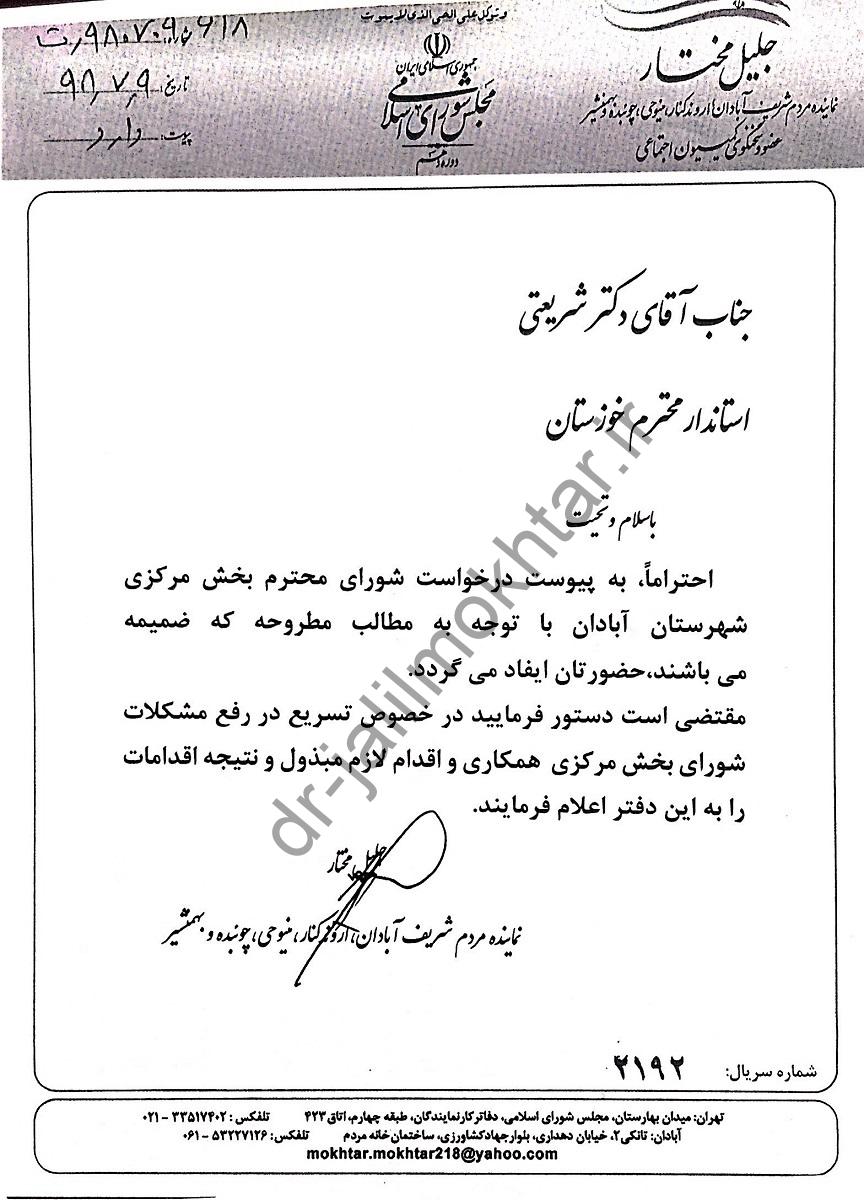 و توکل علی الحی الذی لا یموت
جمهوری اسلامی ایران
مجلس شورای اسلامی
دوره دهم
جلیل مختار
نماینده مردم شریف آبادان، اروندکنار، منیوحی، چوئبده و بهمنشیر
عضو و سخنگوی کمیسیون اجتماعی
شماره:
تاریخ: ۹۸٫۷٫۹
پیوست: دارد
جناب آقای دکتر شریعتی
استاندار محترم خوزستان
باسلام و تحیت
احتراماً، به پیوست درخواست شورای محترم بخش مرکزی
شهرستان آبادان با توجه به مطالب مطروحه که ضمیمه
می باشند،حضورتان ایفاد می گردد.
مقتضی است دستور فرمایید در خصوص تسریع در رفع مشکلات
شورای بخش مرکزی همکاری و اقدام لازم مبذول و نتیجه اقدامات
را به این دفتر اعلام فرمایند.
جلیل مختار
نماینده مردم شریف آبادان، اروندکنار، منیوحی، چوئبده و بهمنشیر
شماره سریال: ۲۱۹۲
تهران: میدان بهارستان، مجلس شورای اسلامی، دفاتر کار نمایندگان، طبقه چهارم، اتاق ۴۲۳ تلفکس: ۳۳۵۱۷۴۰۲ - ۰۲۱
آبادان: تانکی۲، خیابان دهداری، بلوار جهاد کشاورزی، ساختمان خانه مردم تلفکس: ۵۳۲۲۷۱۲۶ - ۰۶۱
mokhtar.mokhtar218@yahoo.com
dr-jalilmokhtar.ir